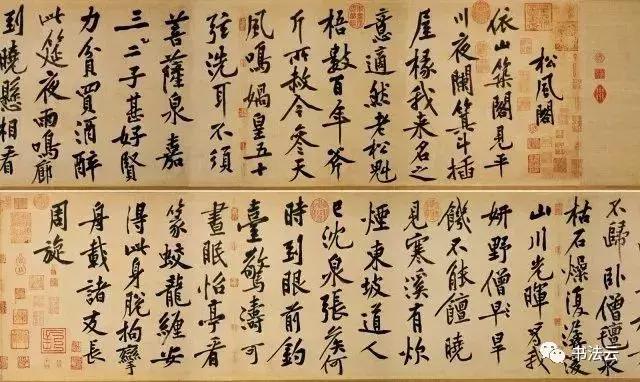 松風閣
依山築閣見平
川夜闌箕斗插
屋椽我來名之
意適然老松魁
梧數百年斧
斤所赦今參天
風鳴媧皇五十
弦洗耳不須
菩薩泉嘉
三二子甚好賢
力貧買酒醉
此筵夜雨鳴廊
到曉懸相看
不歸臥僧氈泉
枯石燥復潺湲
山川光暉為我
妍野僧早旱
饑不能饘曉
見寒溪有炊
煙東坡道人
已沈泉張侯何
時到眼前釣
臺驚濤可
晝眠怡亭看
篆蛟龍纏安
得此身脫拘攣
舟載諸友長
周旋
书法云